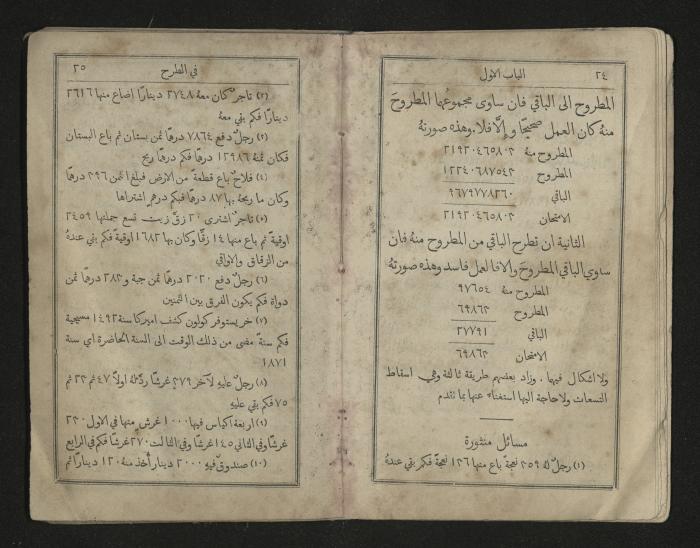 ٢٤ الباب الاول
المطروح الى الباقي فان ساوى مجموعها المطروح
منهُ كان العمل صحيحًا والَّا فلا. وهذه صورتهُ
المطروح منهُ ٢١٩٢٠٤٦٥٨٠٣
المطروح ١٢٢٤٠٦٨٧٥٤٣
الباقي ٩٦٧٩٧٧٨٢٦٠
الامتحان ٢١٩٢٠٤٦٥٨٠٣
الثانية ان تطرح الباقي من المطروح منهُ فان
ساوى الباقي المطروح والَّا فالعمل فاسد وهذه صورتهُ
المطروح منهُ ٩٧٦٥٤
المطروح ٦٩٨٦٣
الباقي ٢٧٧٩١
الامتحان ٦٩٨٦٣
ولا اشكال فيها. وزاد بعضهم طريقة ثالثة وهي اسقاط
التسعات ولا حاجة اليها استغناءً عنها بما تقدم
مسائل منثورة
(١) رجلٌ لهُ ٣٥٩ نعجةً باع منها ١٣٦ نعجةً فكم بقي عندهُ
في الطرح ٢٥
(٢) تاجرٌ كان معهُ ٢٧٤٨ دينارًا اضاع منها ٢٦١٦
دينارًا فكم بقي معهُ
(٣) رجلٌ دفع ٧٨٦٤ درهمًا ثمن بستان ثم باع البستان
فكان ثمنهُ ١٢٩٨٦ درهمًا فكم درهمًا ربح
(٤) فلاحٌ باع قطعةً من الارض فبلغ الثمن ٢٩٦ درهمًا
وكان ما ربحهُ بها ٨٧ درهمًا فبكم درهم اشتراها
(٥) تاجرٌ اشترى ٢٠ زقَّ زيت تسع جملتها ٢٤٥٩
اوقيةً ثم باع منها ١٤ زقًّا وكان بها ١٦٨٢ اوقيةً فكم بقي عندهُ
من الزقاق والاواقي
(٦) رجلٌ دفع ٢٠٢٠ درهمًا ثمن جبة و٢٨٣ درهمًا ثمن
دواة فكم يكون الفرق بين الثمنين
(٧) خريستوفر كولون كشف اميركا سنة ١٤٩٢ مسيحية
فكم سنةً مضى من ذلك الوقت الى السنة الحاضرة اي سنة
١٨٧١
(٨) رجلٌ عليهِ لآخر ٢٧٩ غرشًا ردَّ لهُ اولًا ٤٧ ثم ٢٣ ثم
٧٥ فكم بقي عليهِ
(٩) اربعة اكياس فيها ١٠٠٠ غرش منها في الاول ٢٣٠
غرشًا وفي الثاني ١٤٥ غرشًا وفي الثالث ٢٧٠ غرشًا فكم في الرابع
(١٠) صندوقٌ فيهِ ٢٠٠٠ دينار أُخذ منهُ ١٢٠ دينارًا ثم